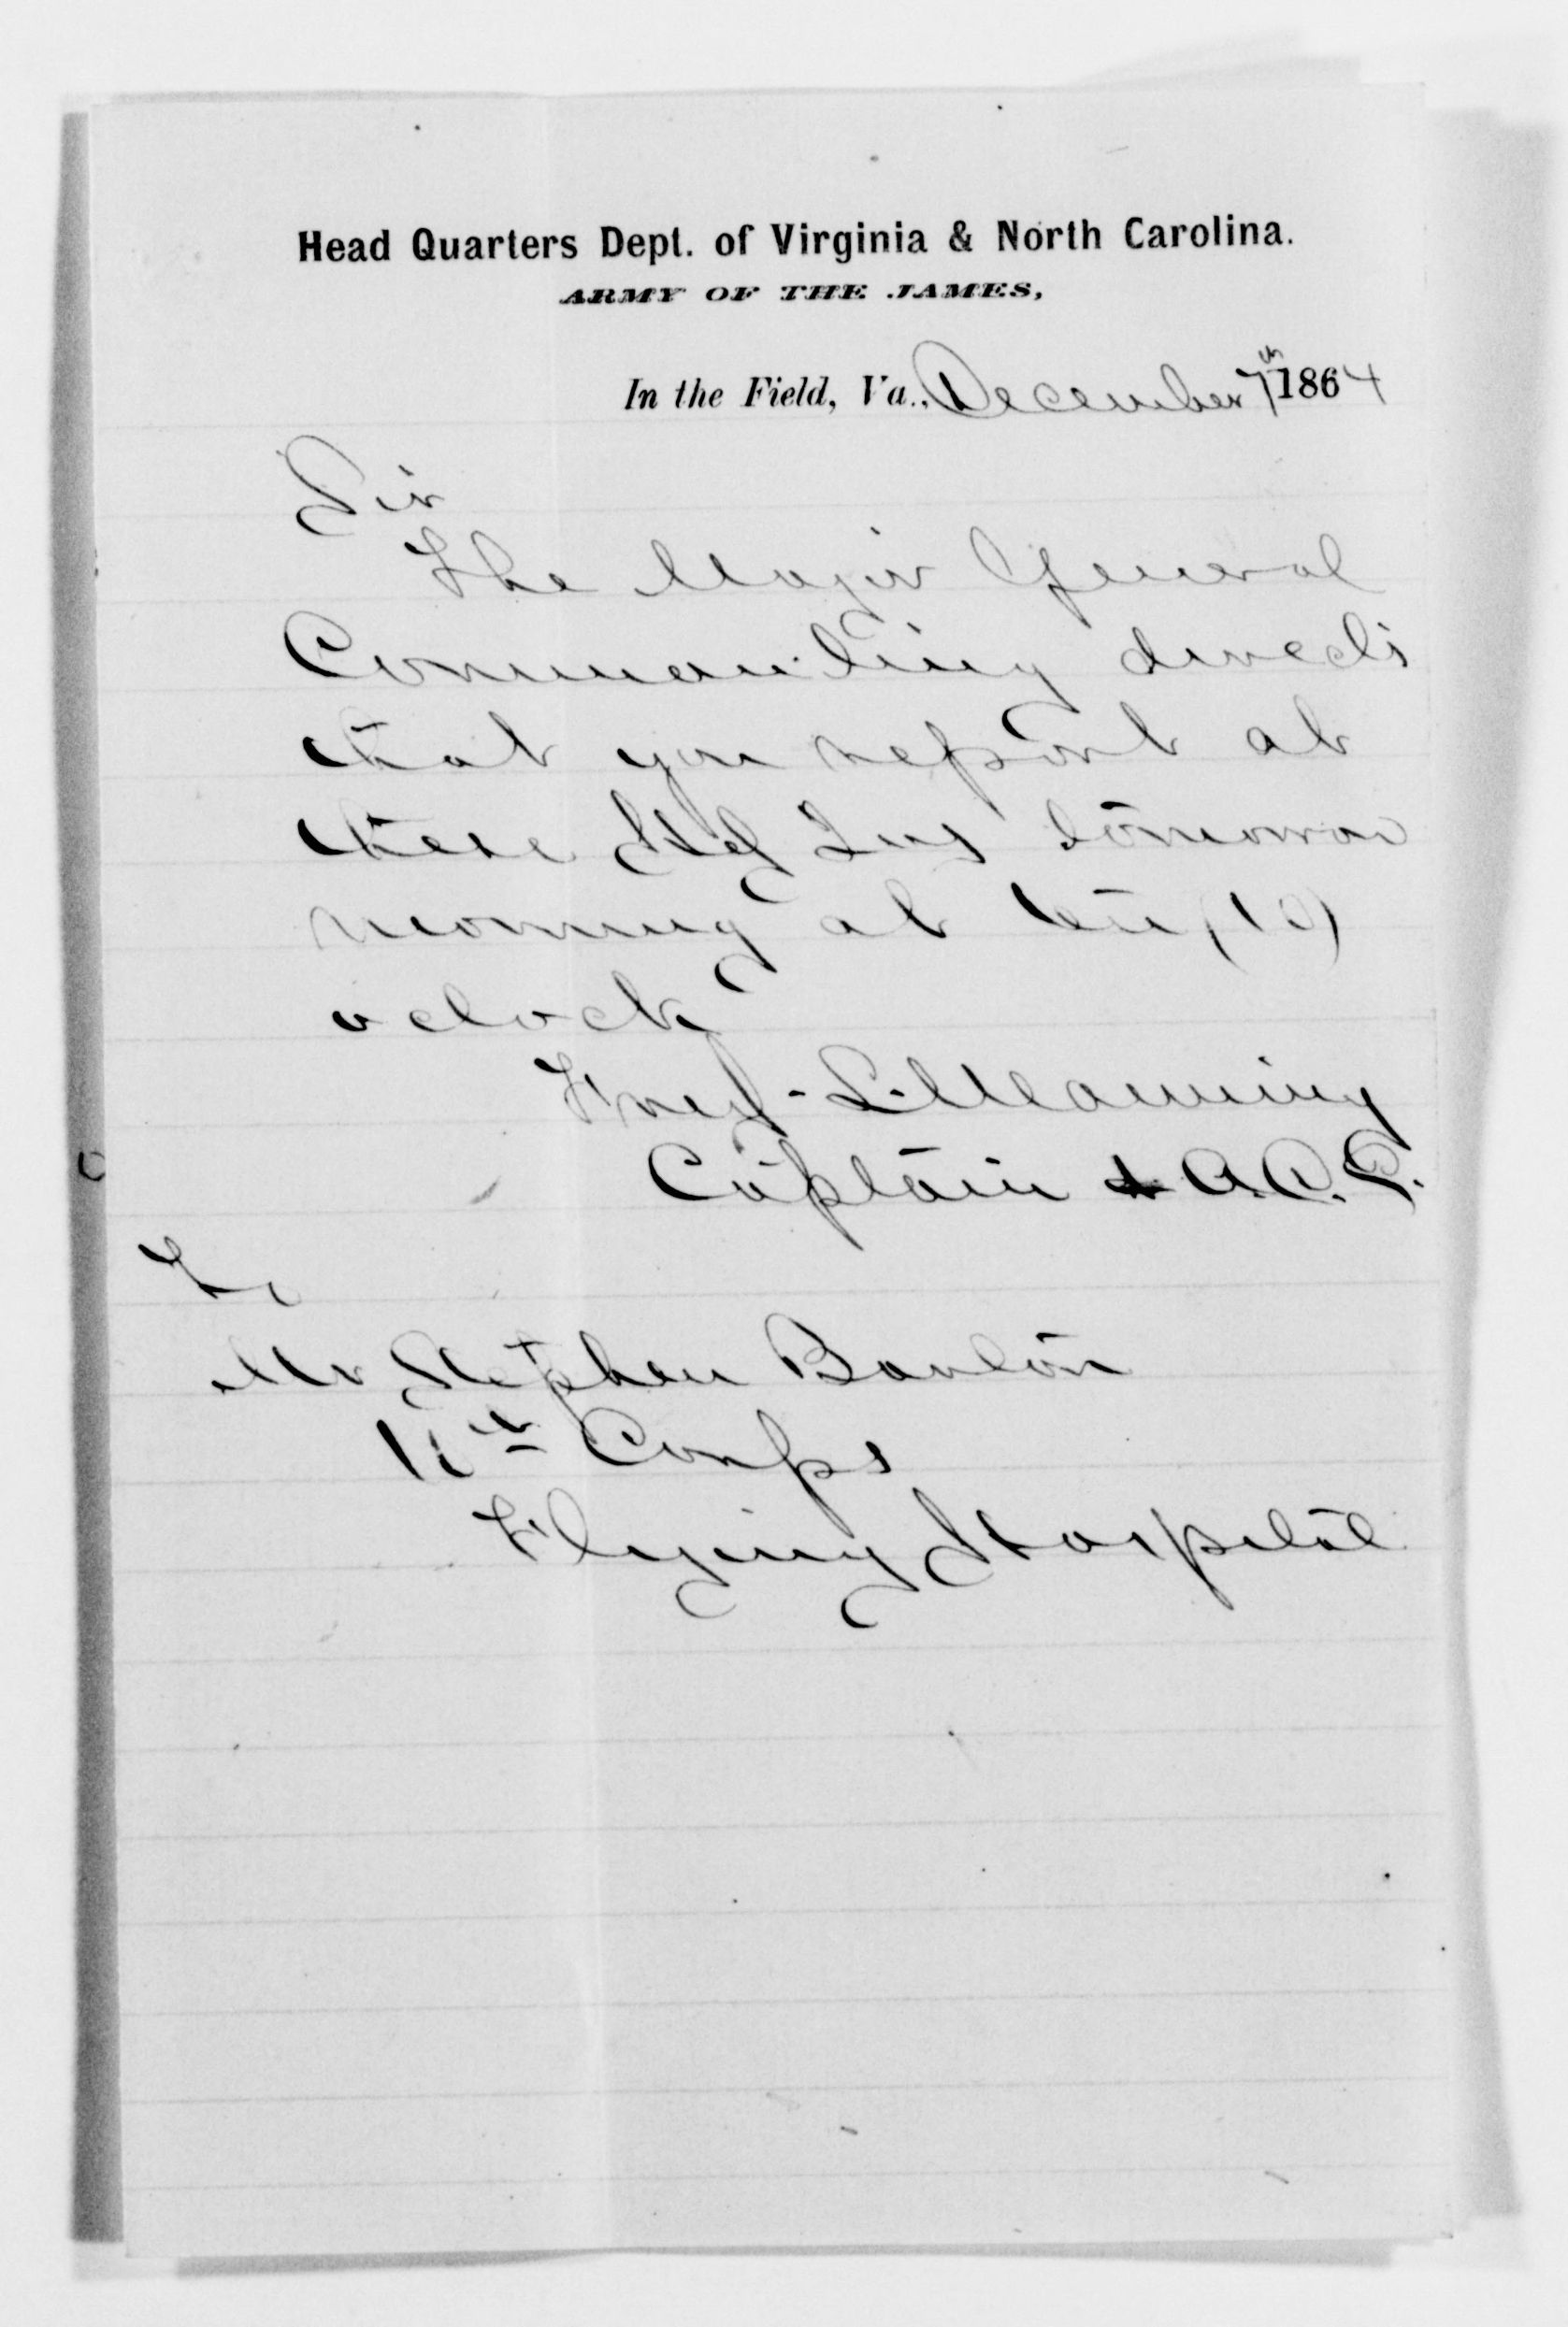 Head Quarters Dept. of Virginia & North Carolina.
ARMY OF THE JAMES,
In the Field, Va., December 7th 1864
Sir
The Major General
Commanding directs
that you report at
these Hd Qrs tomorrow
morning at ten (10)
o'clock
Fred. L. Manning
Captain & A.A.G.
To
Mr Stephen Barton
Corps
Flying Hospital